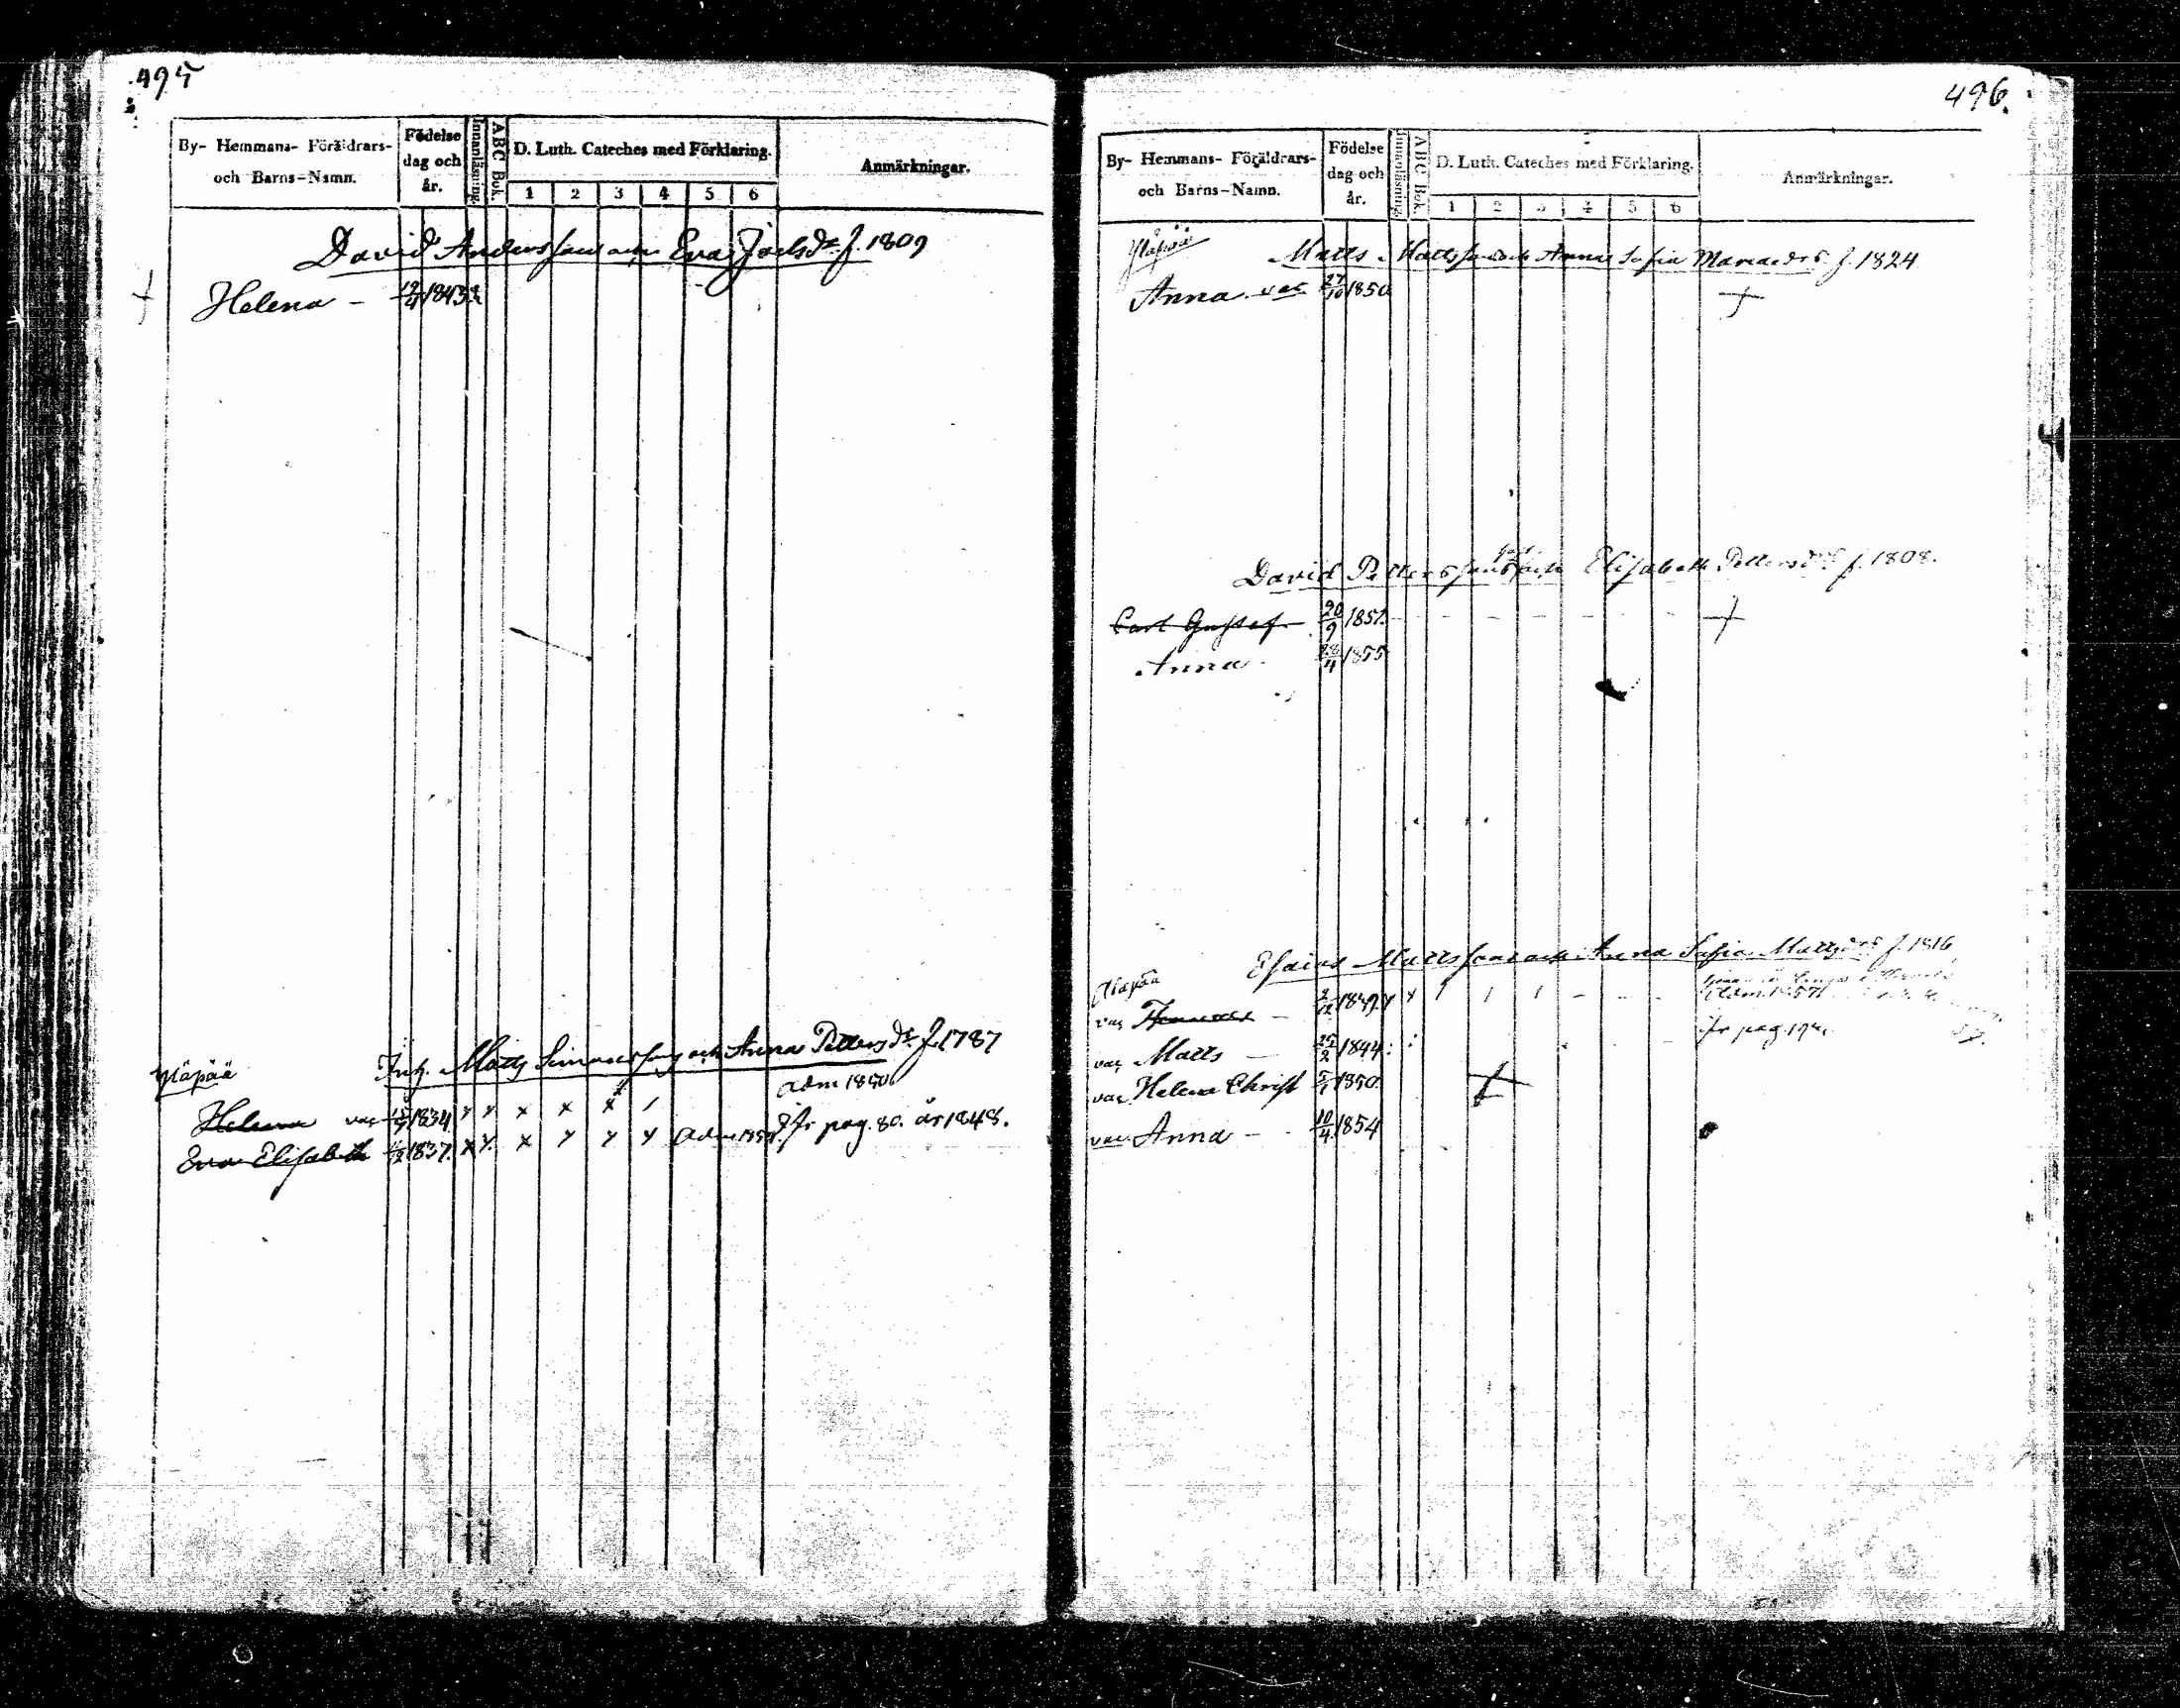 495
By- Hemmans- Föräldrars- och Barns-Namn.
Födelse dag och år.
Innanläsning.
ABC Bok.
D. Luth. Cateches med Förklaring.
1 2 3 4 5 6
Anmärkningar.
David Andersson och Eva Joelsdr f. 1809
Helena - 12/4 1843
Inh. Matts Simonsson och Anna Pettersdr f. 1787
Yläpää
adm 1850
Helena vac 1834 x x x x x /
Eva Elisabeth 1837. x x x x x x adm 185 Jfr pag. 80. år 1848.
496.
By- Hemmans- Föräldrars- och Barns-Namn.
Födelse dag och år.
Innanläsning.
ABC Bok.
D. Luth. Cateches med Förklaring.
1 2 3 4 5 6
Anmärkningar.
Yläpää
Matts Mattsson och Anna Sofia f. 1824
Anna vac 27/10 1850
David Pettersson och Elisabeth Pettersdr f. 1808.
Carl Gustaf 20/9 1851
Anna 28/4 1855
Esaias Mattsson och Anna Sofia Mattsdr f. 1816
Alapää
vac Thomas 2/12 1839
Adm. 1857
vac Matts 25/2 1844
Jfr pag.
vac Helena Christ 5/1 1850
vac Anna 10/4 1854